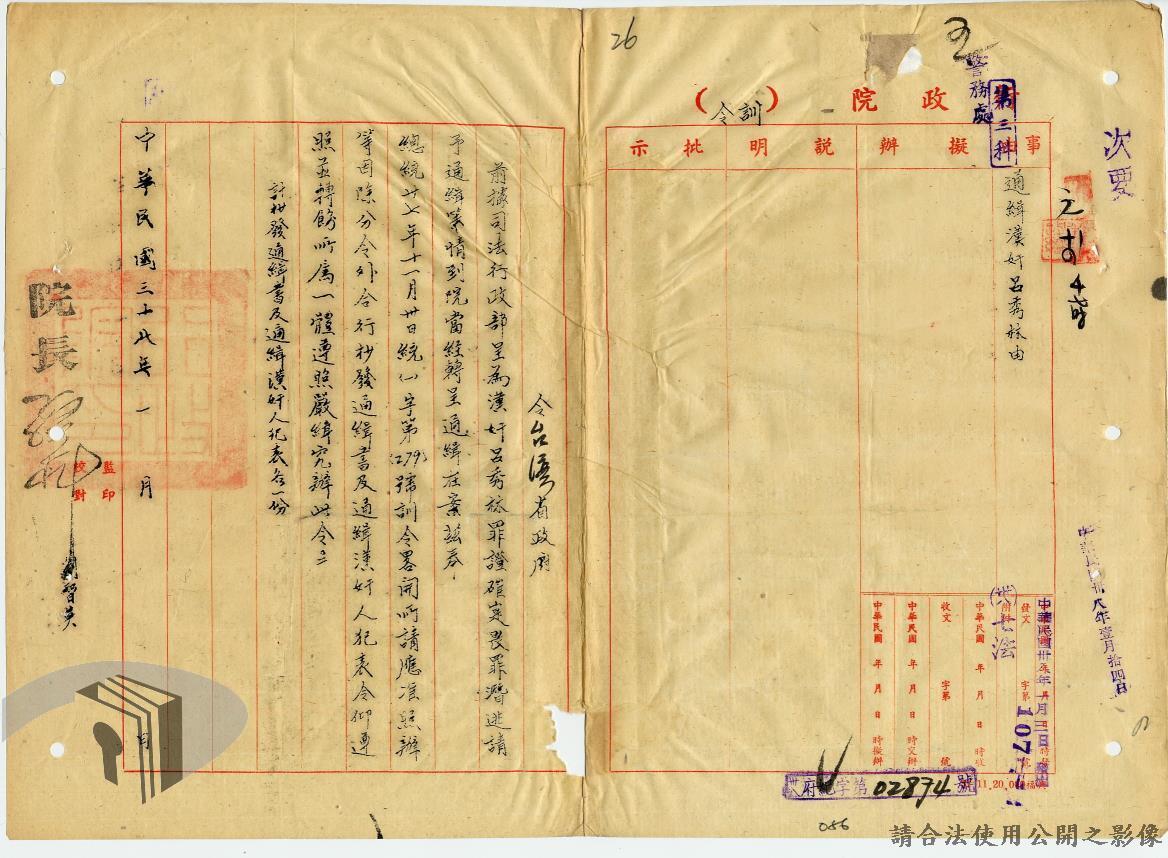 26
次要
警務處
第三科
行政院（訓令）
事由
擬辦
說明
批示
通緝漢奸呂秀 由
令台灣省政府
前據司法行政部呈為漢奸呂秀 罪證確實畏罪潛逃請
予通緝等情到院當經轉呈通緝在案茲奉
總統卅七年十一月卅日統(一)字第279號訓令畧開所請應准照辦
等因除分令外合行抄發通緝書及通緝漢奸人犯表令仰遵
照並轉飭所屬一體遵照嚴緝究辦此令
計抄發通緝書及通緝漢奸人犯表各一份
院長
中華民國三十八年一月 日
監印
校對
發文 字第 號
附件
中華民國 年 月 日 時收
收文 字第 號
中華民國 年 月 日 時交辦
中華民國 年 月 日 時擬辦
中華民國卅八年壹月拾四日
府 字第02874號
11.20.0
056
請合法使用公開之影像